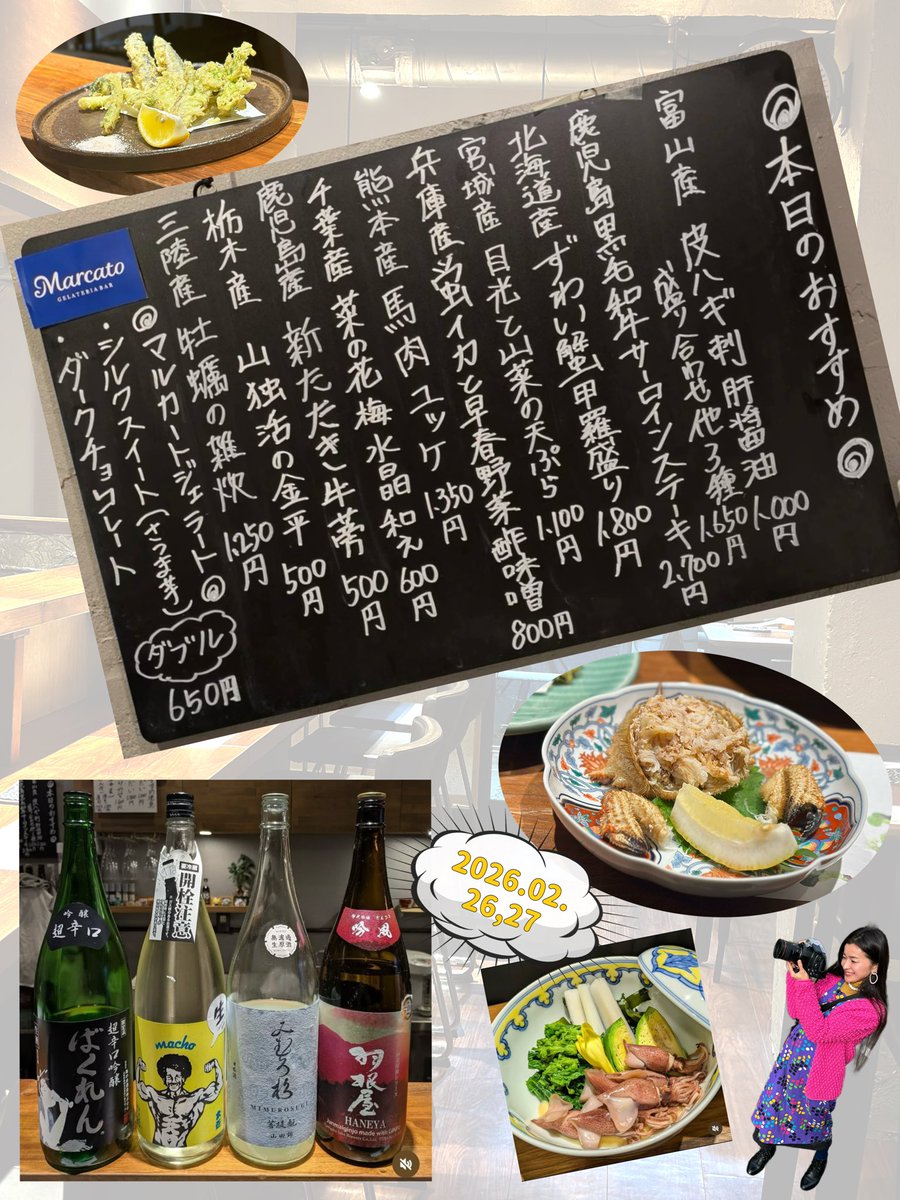 本日のおすすめ
富山産 皮ハギ刺 肝醤油 1.000円
盛り合わせ他3種 1.650円
鹿児島黒毛和牛サーロインステーキ 2.700円
北海道産 ずわい蟹甲羅盛り 1.800円
宮城産 目光と山菜の天ぷら 1.100円
兵庫産 蛍イカと早春野菜酢味噌 800円
熊本産 馬肉ユッケ 1.350円
千葉産 菜の花 梅水晶和え 600円
鹿児島産 新たたき牛蒡 500円
栃木産 山独活の金平 500円
三陸産 牡蠣の雑炊 1.250円
◎マルカートジェラート◎
・シルクスイート(さつま芋)
・ダークチョコレート
ダブル
650円
Marcato
GELATERIA BAR
吟醸
超辛口
超辛口吟醸
ばくれん
開栓注意
生
macho
無濾過
生原酒
みむろ杉
MIMUROSUGI
菩提酛
山田錦
吟風
羽根屋
HANEYA
2026.02.
26,27